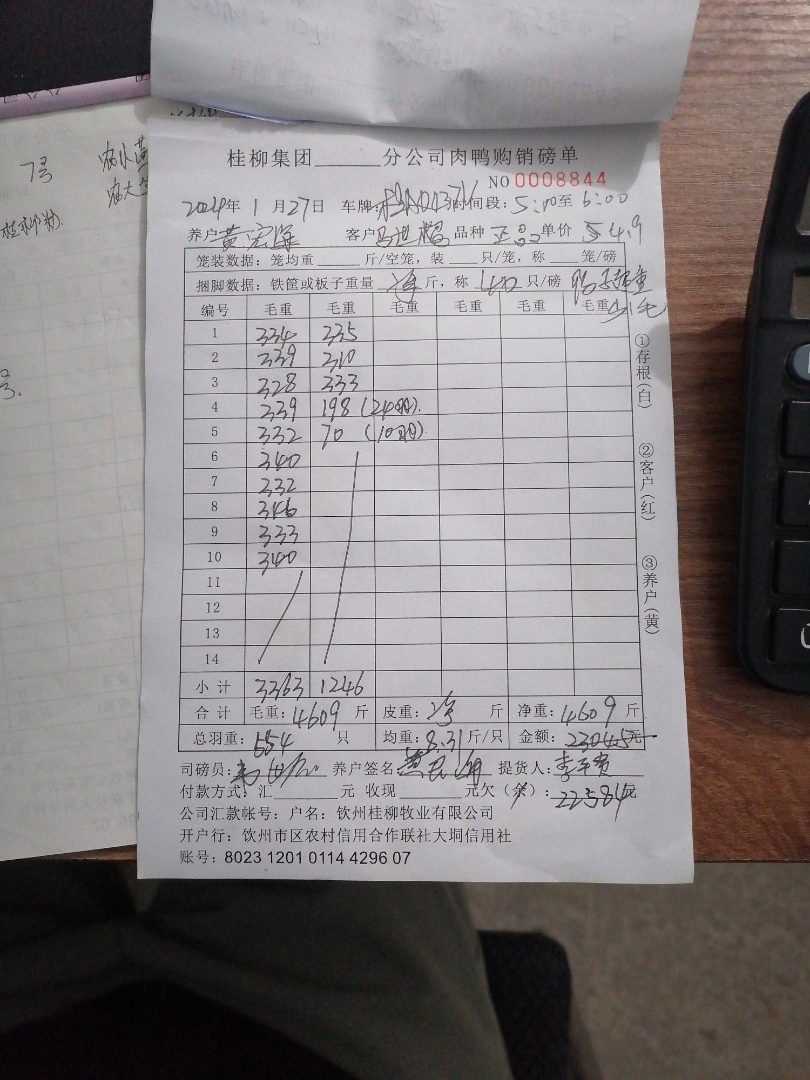 7号
桂柳集团______分公司肉鸭购销磅单
NO 0008844
2024年 1 月 27 日 车牌: 时间段: 5:00 至 6:00
养户 黄 客户 品种 正品 单价
笼装数据: 笼均重______斤/空笼, 装___只/笼, 称___笼/磅
捆脚数据: 铁筐或板子重量 净 斤, 称 40 只/磅
编号 毛重 毛重 毛重 毛重 毛重 毛重
1 334 335
2 339 310
3 328 333
4 339 198 (24只)
5 332 70 (10只)
6 340
7 332
8 346
9 333
10 340
11
12
13
14
小 计 3363 1246
合 计 毛重: 4609 斤 皮重: 净 斤 净重: 4609 斤
总羽重: 554 只 均重: 8.31 斤/只 金额: 23045元
司磅员: 养户签名: 黄 提货人: 李
付款方式: 汇______元 收现______元欠(余): 22584元
公司汇款帐号: 户名: 钦州桂柳牧业有限公司
开户行: 钦州市区农村信用合作联社大垌信用社
账号: 8023 1201 0114 4296 07
①存根(白)
②客户(红)
③养户(黄)